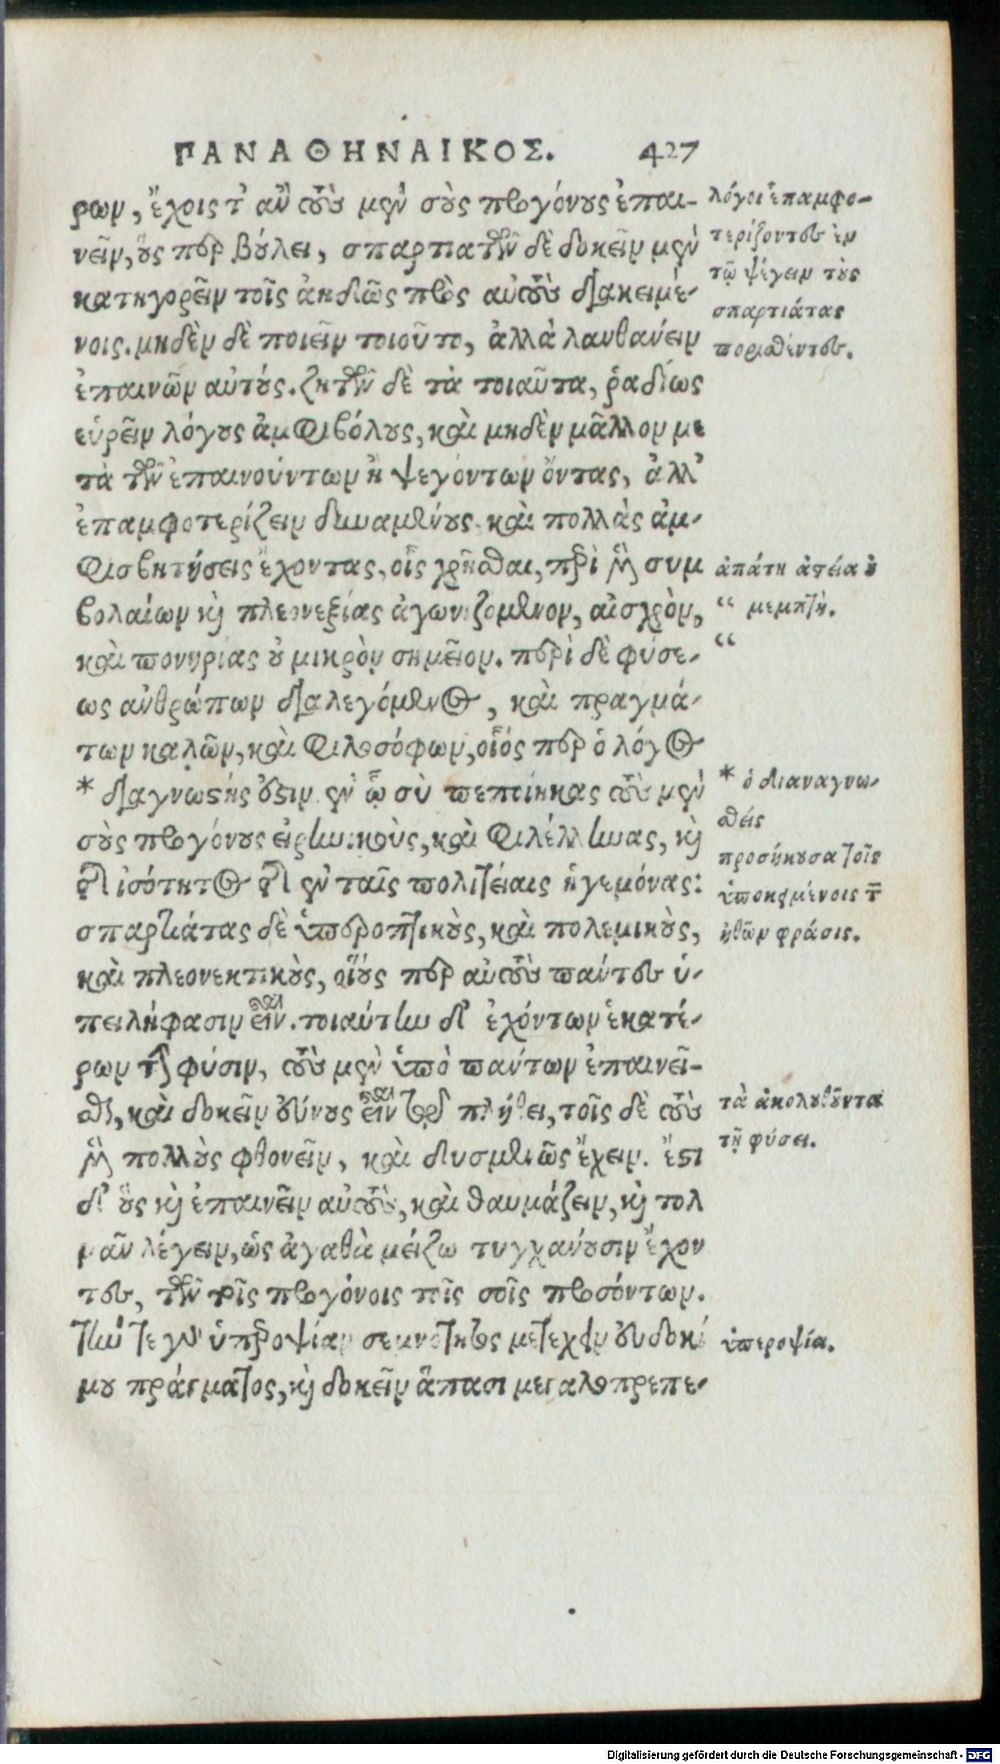 ΠΑΝΑΘΗΝΑΙΚΟΣ. 427
ρων, ἔχοις τ' ἂν τοὺς μὲν σοὺς προγόνους ἐπαι-
νεῖν, οὕς περ βούλει, σπαρτιατῶν δὲ δοκεῖν μὲν
κατηγορεῖν τοῖς ἀηδῶς πρὸς αὐτοὺς διακειμέ-
νοις. μηδὲν δὲ ποιεῖν τοιοῦτο, ἀλλὰ λανθάνειν
ἐπαινῶν αὐτούς. ζητῶν δὲ τὰ τοιαῦτα, ῥαδίως
εὑρεῖν λόγους ἀμφιβόλους, καὶ μηδὲν μᾶλλον με
τὰ τῶν ἐπαινούντων ἢ ψεγόντων ὄντας, ἀλλ'
ἐπαμφοτερίζειν δυναμένους καὶ πολλὰς ἀμ-
φισβητήσεις ἔχοντας, οἷς χρῆσθαι, περὶ μὲν συμ
βολαίων καὶ πλεονεξίας ἀγωνιζόμενον, αἰσχρὸν,
καὶ πονηρίας οὐ μικρὸν σημεῖον. περὶ δὲ φύσε-
ως ἀνθρώπων διαλεγόμενος, καὶ πραγμά-
των καλῶν, καὶ φιλοσόφων, οἷός περ ὁ λόγος
* διαγνωσθείς ὅστιν ἐν ᾧ σὺ πεποίηκας τοὺς μὲν
σοὺς προγόνους εἰρηνικοὺς, καὶ φιλέλληνας, καὶ
τῆς ἰσότητος τῆς ἐν ταῖς πολιτείαις ἡγεμόνας:
σπαρτιάτας δὲ ὑπεροπτικοὺς, καὶ πολεμικοὺς,
καὶ πλεονεκτικοὺς, οἵους περ αὐτοὺς πάντες ὑ-
πειλήφασιν εἶναι. τοιαύτην δ' ἐχόντων ἑκατέ-
ρων τὴν φύσιν, τοὺς μὲν ὑπὸ πάντων ἐπαινεῖ-
σθαι, καὶ δοκεῖν εὔνους εἶναι τῷ πλήθει, τοῖς δὲ τοὺς
μὲν πολλοὺς φθονεῖν, καὶ δυσμενῶς ἔχειν. ἔστι
δ' οὓς καὶ ἐπαινεῖν αὐτοὺς, καὶ θαυμάζειν, καὶ τολ
μᾶν λέγειν, ὡς ἀγαθὰ μείζω τυγχάνουσιν ἔχον
τες, τῶν τοῖς προγόνοις τοῖς σοῖς προσόντων.
τήν τε γὰρ ὑπεροψίαν σεμνότητος μετέχειν εὐδοκί
μου πράγματος, καὶ δοκεῖν ἅπασι μεγαλοπρεπε-
λόγοι ἐπαμφο-
τερίζοντες ἐν
τῷ ψέγειν τοὺς
σπαρτιάτας
πορισθέντες.
ἀπάτη ἀστεία οὐ
“ μεμπτή.
“
* ὁ διαναγνω-
σθείς
προσήκουσα τοῖς
ὑποκειμένοις τῶν
ἠθῶν φράσις.
τὰ ἀκολουθοῦντα
τῇ φύσει.
ὑπεροψία.
Digitalisierung gefördert durch die Deutsche Forschungsgemeinschaft - DFG